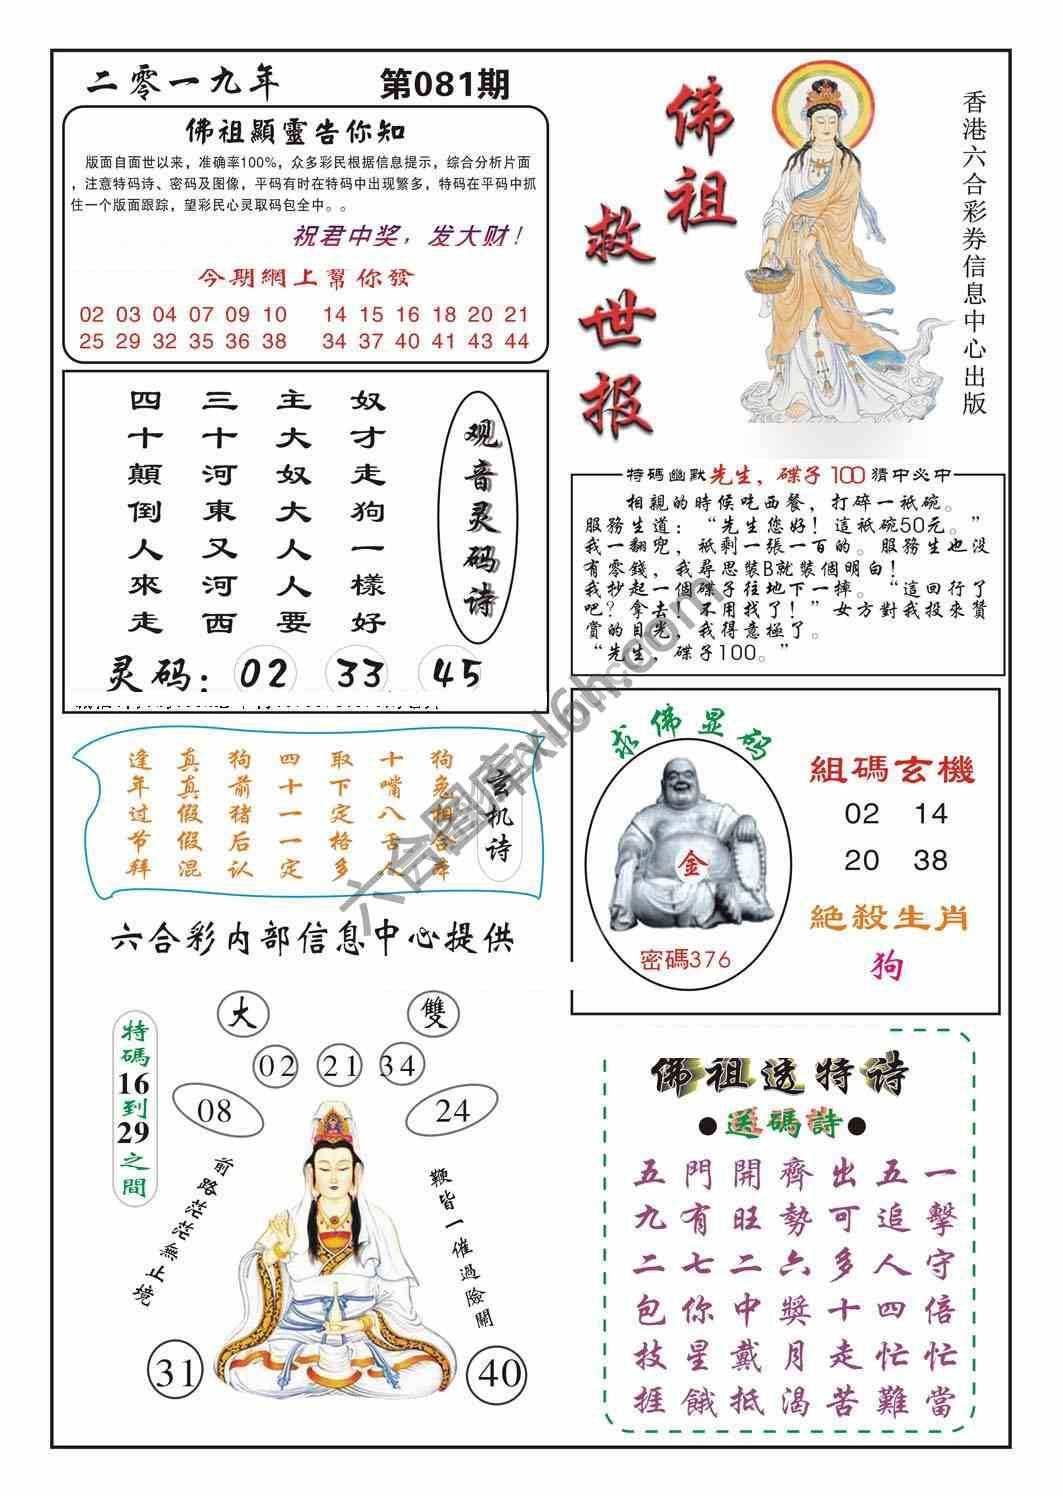 二零一九年 第081期
佛祖顯靈告你知
版面自面世以来，准确率100%，众多彩民根据信息提示，综合分析片面
，注意特码诗、密码及图像，平码有时在特码中出现繁多，特码在平码中抓
住一个版面跟踪，望彩民心灵取码包全中。。
祝君中奖，发大财！
今期網上幫你發
02 03 04 07 09 10 14 15 16 18 20 21
25 29 32 35 36 38 34 37 40 41 43 44
佛祖救世报
香港六合彩券信息中心出版
观音灵码诗
奴才走狗一樣好
主大奴大人人要
三十河東又河西
四十顛倒人來走
灵码：02 33 45
特碼幽默先生，碟子100猜中必中
相親的時候吃西餐，打碎一祇碗。
服務生道：“先生您好！這祇碗50元。”
我一翻兜，祇剩一張一百的。服務生也没
有零錢，我尋思裝B就裝個明白！
我抄起一個碟子往地下一摔。“這回行了
吧？拿去！不用找了！”女方對我投來贊
賞的目光，我得意極了。
“先生，碟子100。”
玄机诗
狗兔相合
十嘴八舌人
取下定格多
四十一一定
狗前猪后认
真真假假混
逢年过节拜
求佛显码
金
密碼376
組碼玄機
02 14
20 38
絕殺生肖
狗
六合彩内部信息中心提供
大 雙
02 21 34
08 24
特碼16到29之間
前路茫茫無止境
鞭皆一催過險關
31 40
佛祖透特诗
●送碼詩●
五門開齊出五一
九有旺勢可追擊
二七二六多人守
包你中獎十四倍
技星戴月走忙忙
捱餓抵渴苦難當
六合图库xl6h.com